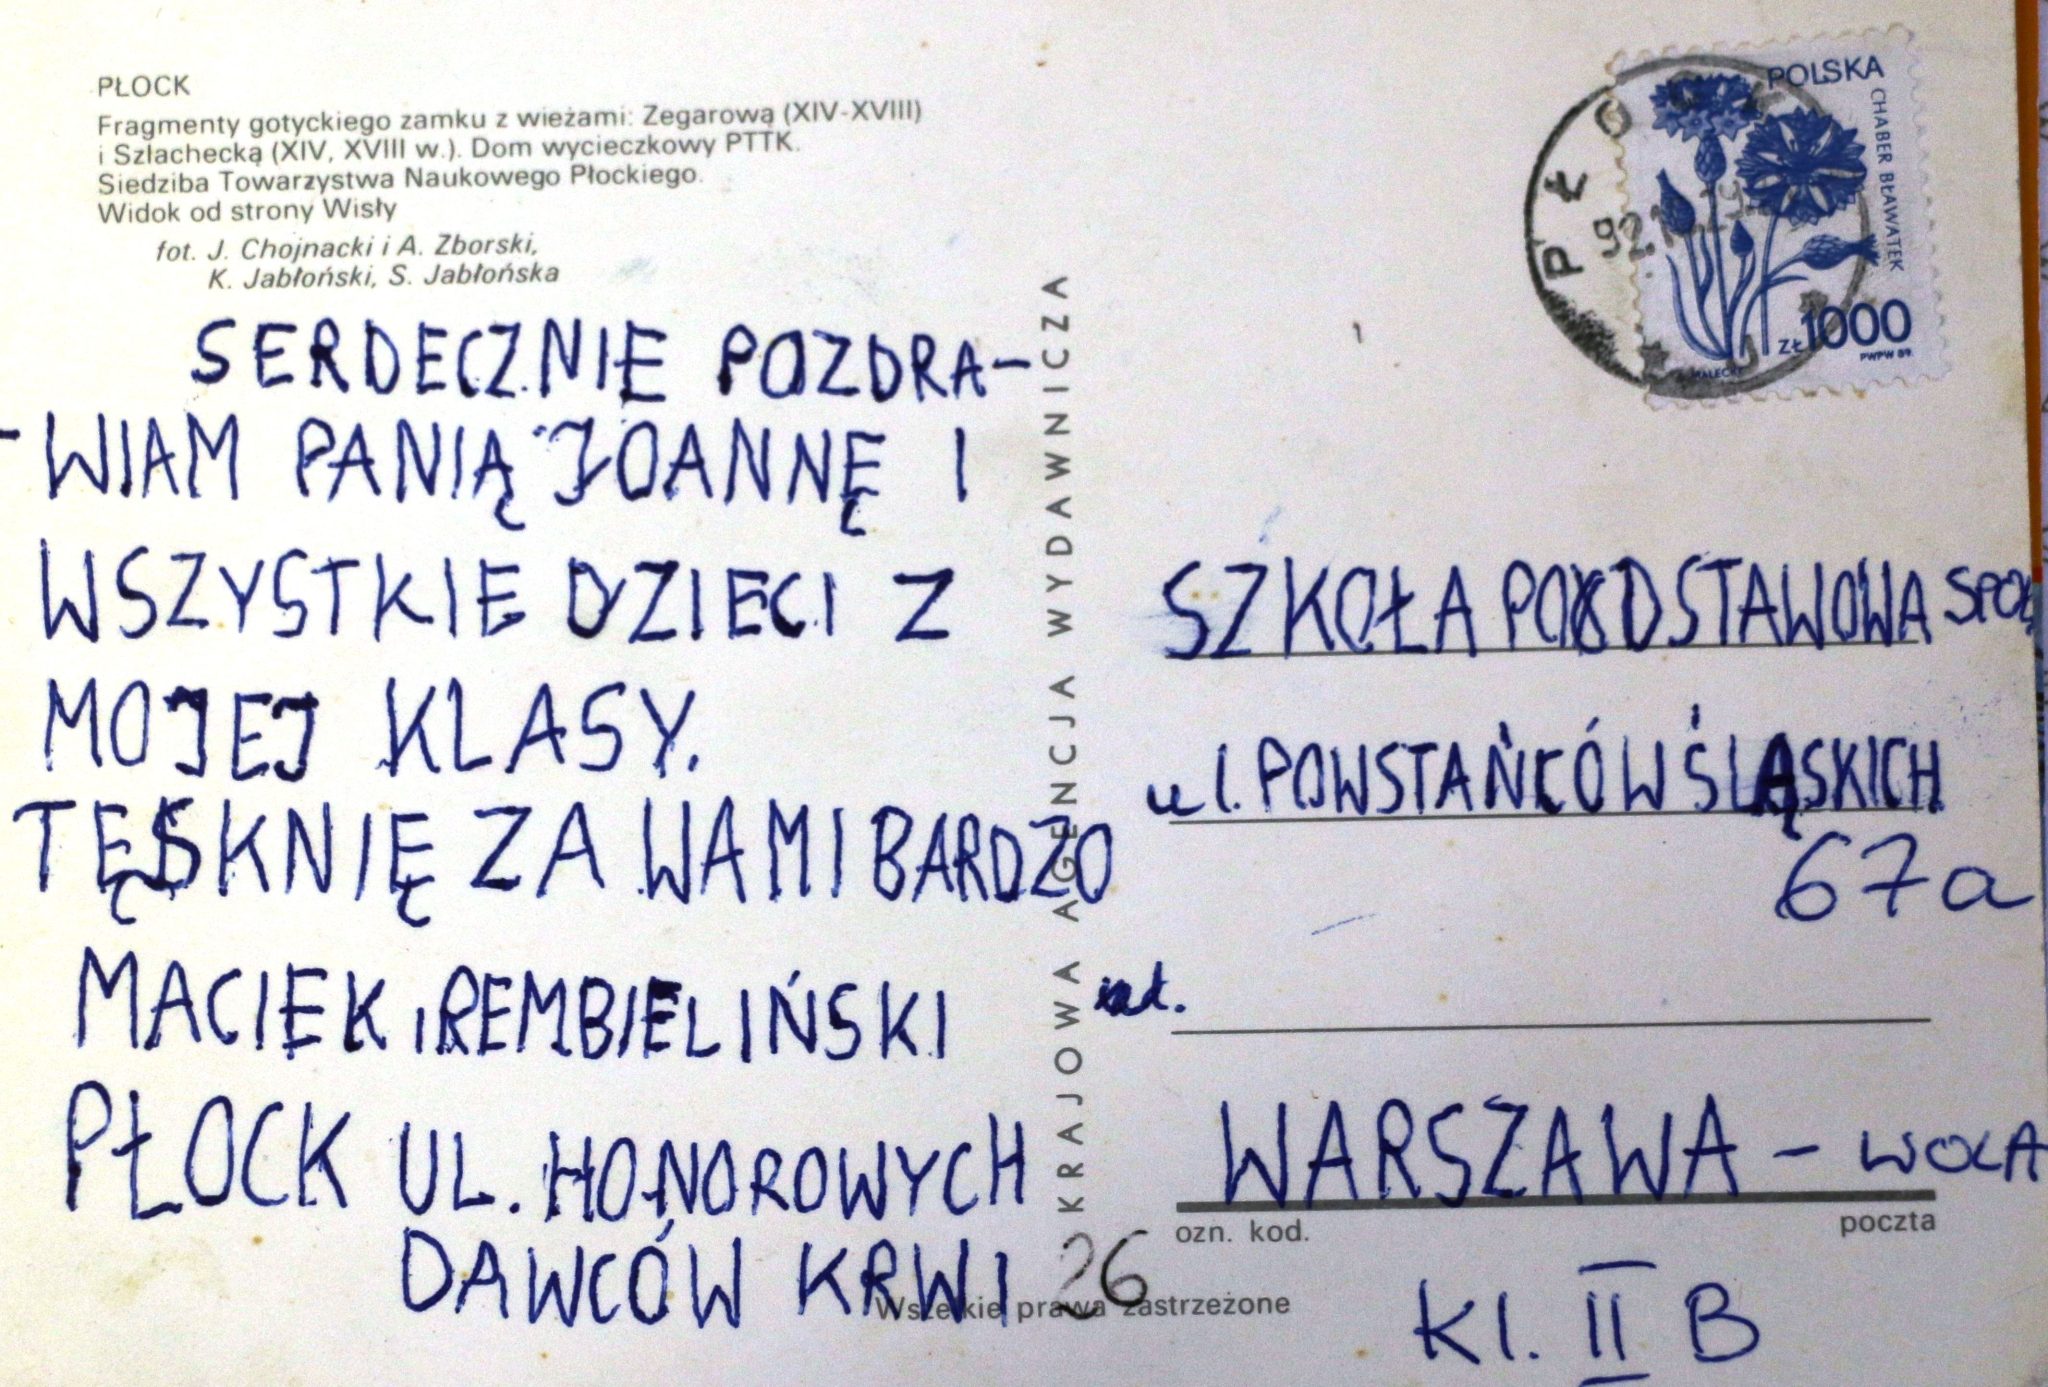 PŁOCK
Fragmenty gotyckiego zamku z wieżami: Zegarową (XIV-XVIII)
i Szlachecką (XIV, XVIII w.). Dom wycieczkowy PTTK.
Siedziba Towarzystwa Naukowego Płockiego.
Widok od strony Wisły
fot. J. Chojnacki i A. Zborski,
K. Jabłoński, S. Jabłońska
SERDECZNIE POZDRA-
-WIAM PANIĄ JOANNĘ I
WSZYSTKIE DZIECI Z
MOJEJ KLASY.
TĘSKNIĘ ZA WAMI BARDZO
MACIEK REMBIELIŃSKI
PŁOCK UL. HONOROWYCH
DAWCÓW KRWI 26
KRAJOWA AGENCJA WYDAWNICZA
Wszelkie prawa zastrzeżone
POLSKA
CHABER BŁAWATEK
ZŁ 1000
PWPW 89
MALECKI
PŁOCK
SZKOŁA PODSTAWOWA SPOŁ.
ul. POWSTAŃCÓW ŚLĄSKICH
67a
WARSZAWA - WOLA
ozn. kod.
poczta
Kl. II B